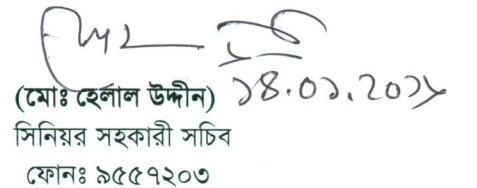 (মোঃ হেলাল উদ্দীন) ১৪.০১.২০১৮
সিনিয়র সহকারী সচিব
ফোনঃ ৯৫৫৭২০৩